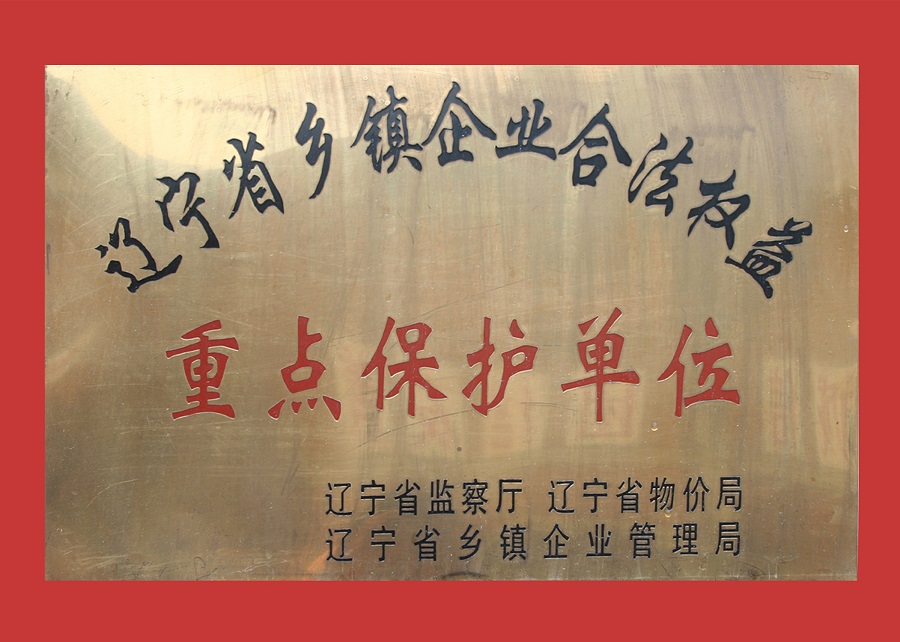 辽宁省乡镇企业合法权益
重点保护单位
辽宁省监察厅 辽宁省物价局
辽宁省乡镇企业管理局